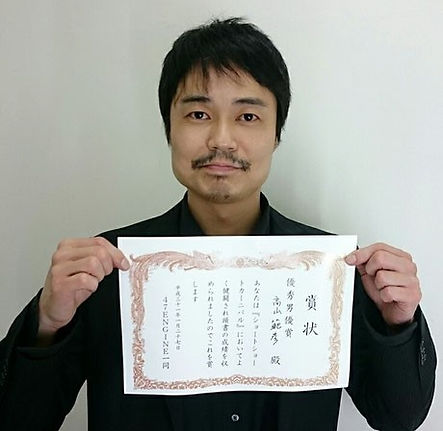 賞状
優秀男優賞
高山範彦 殿
あなたは『ショートショー
トカーニバル』においてよ
く健闘され頭書の成績を収
められましたのでこれを賞
します
平成三十一年一月二十七日
47ENGINE一同